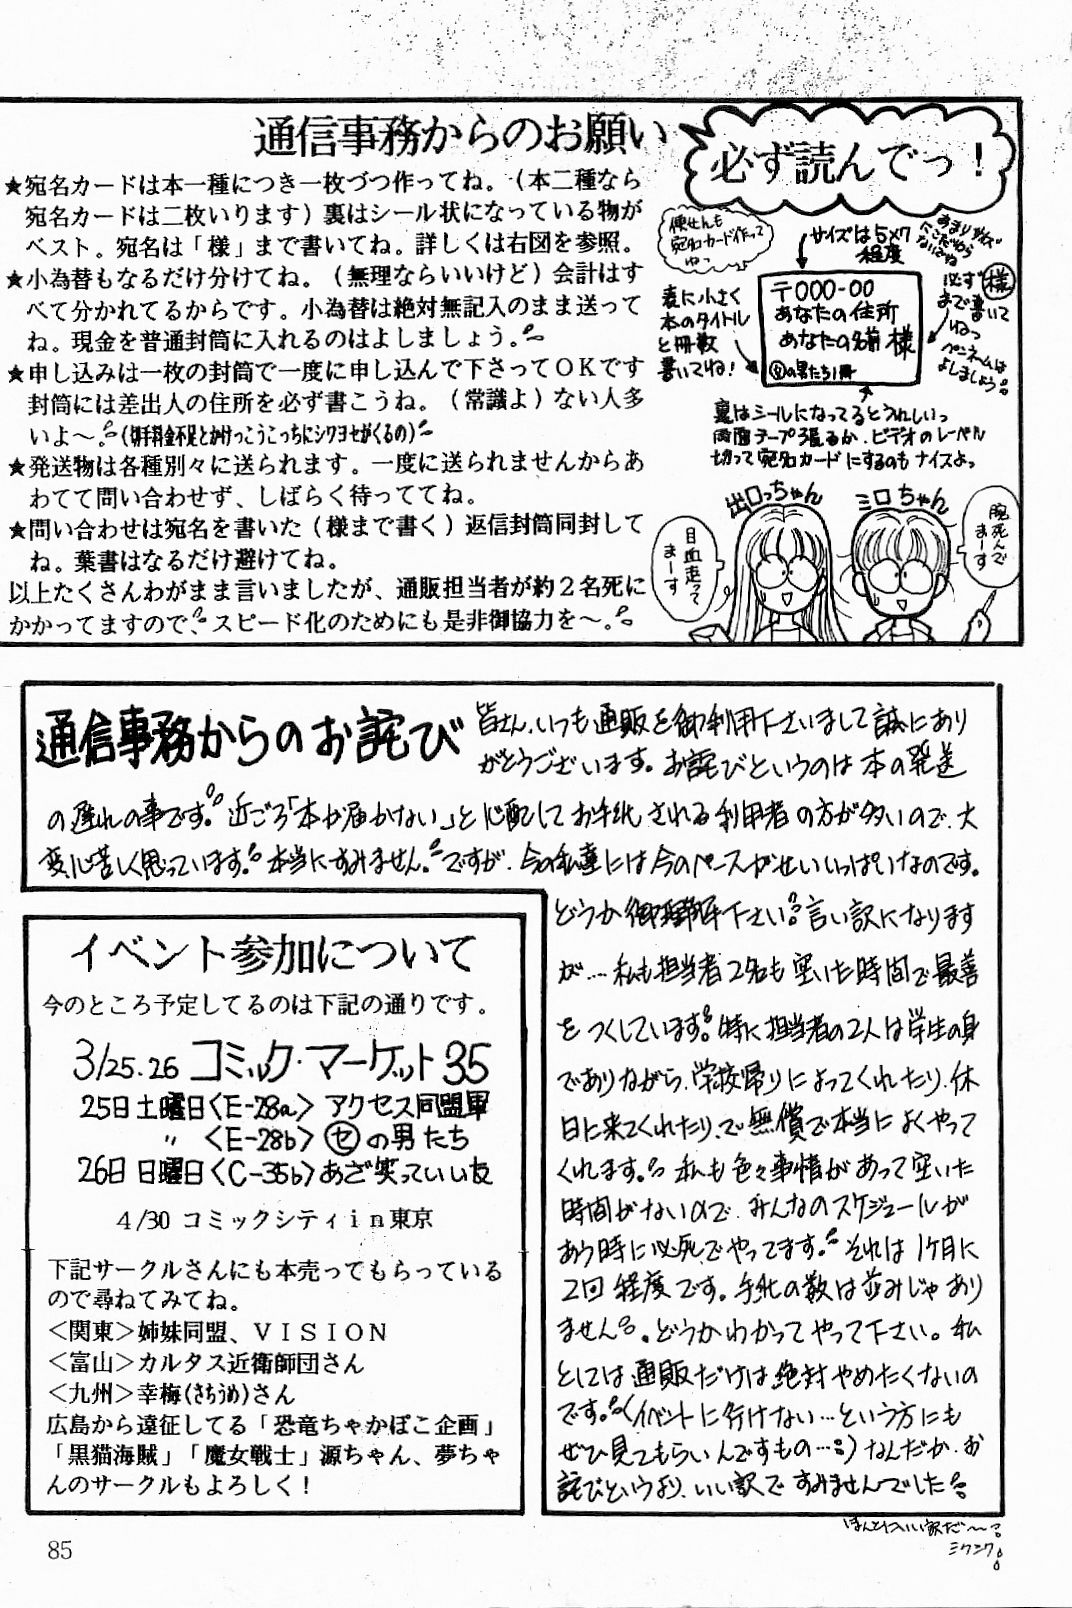 通信事務からのお願い
必ず読んでっ！
★宛名カードは本一種につき一枚づつ作ってね。（本二種なら
宛名カードは二枚いります）裏はシール状になっている物が
ベスト。宛名は「様」まで書いてね。詳しくは右図を参照。
★小為替もなるだけ分けてね。（無理ならいいけど）会計はす
べて分かれてるからです。小為替は絶対無記入のまま送って
ね。現金を普通封筒に入れるのはよしましょう。
★申し込みは一枚の封筒で一度に申し込んで下さってＯＫです
封筒には差出人の住所を必ず書こうね。（常識よ）ない人多
いよ〜。(切手料金不足とかけっこうこっちにシワヨセがくるの)
★発送物は各種別々に送られます。一度に送られませんからあ
わてて問い合わせず、しばらく待っててね。
★問い合わせは宛名を書いた（様まで書く）返信封筒同封して
ね。葉書はなるだけ避けてね。
以上たくさんわがまま言いましたが、通販担当者が約２名死に
かかってますので、スピード化のためにも是非御協力を〜。
便せんも
宛名カード作って
ねっ
サイズは5×7
程度
あまりサイズ
にこだわら
ないでね
必ず様
まで書いて
ねっ
ペンネームは
よしましょう
表に小さく
本のタイトル
と冊数
書いてね!
〒000-00
あなたの住所
あなたの名前 様
㋝の男たち1冊
裏はシールになってるとうれしいっ
両面テープ張るか、ビデオのレーベル
切って宛名カードにするのもナイスよっ
出口っちゃん
ミロちゃん
目血走って
まーす
腕死んで
まーす
通信事務からのお詫び
皆さん、いつも通販を御利用下さいまして誠にあり
がとうございます。お詫びというのは本の発送
の遅れの事です。近ごろ「本が届かない」と心配してお手紙される利用者の方が多いので、大
変心苦しく思っています。本当にすみません。ですが、今の私達には今のペースがせいいっぱいなのです。
どうか御理解下さい。言い訳になります
が…私も担当者2名も空いた時間で最善
をつくしています。特に担当者の2人は学生の身
でありながら、学校帰りによってくれたり、休
日に来てくれたり、で無償で本当によくやって
くれます。私も色々事情があって空いた
時間がないので、みんなのスケジュールが
あう時に必死でやってます。それは1ケ月に
2回程度です。手紙の数は並みじゃあり
ません。どうかわかってやって下さい。私
としては通販だけは絶対やめたくないの
です。(イベントに行けない…という方にも
ぜひ見てもらいんですもの…)なんだか、お
詫びというより、いい訳ですみませんでした
ほんとにいい訳だ〜
ミクニク
イベント参加について
今のところ予定してるのは下記の通りです。
3/25.26 コミック・マーケット35
25日土曜日〈E-28a〉アクセス同盟軍
〃 〈E-28b〉㋝の男たち
26日日曜日〈C-35b〉あざ笑っていい友
4/30 コミックシティｉｎ東京
下記サークルさんにも本売ってもらっている
ので尋ねてみてね。
＜関東＞姉妹同盟、ＶＩＳＩＯＮ
＜富山＞カルタス近衛師団さん
＜九州＞幸梅(さちうめ)さん
広島から遠征してる「恐竜ちゃかぽこ企画」
「黒猫海賊」「魔女戦士」源ちゃん、夢ちゃ
んのサークルもよろしく！
85